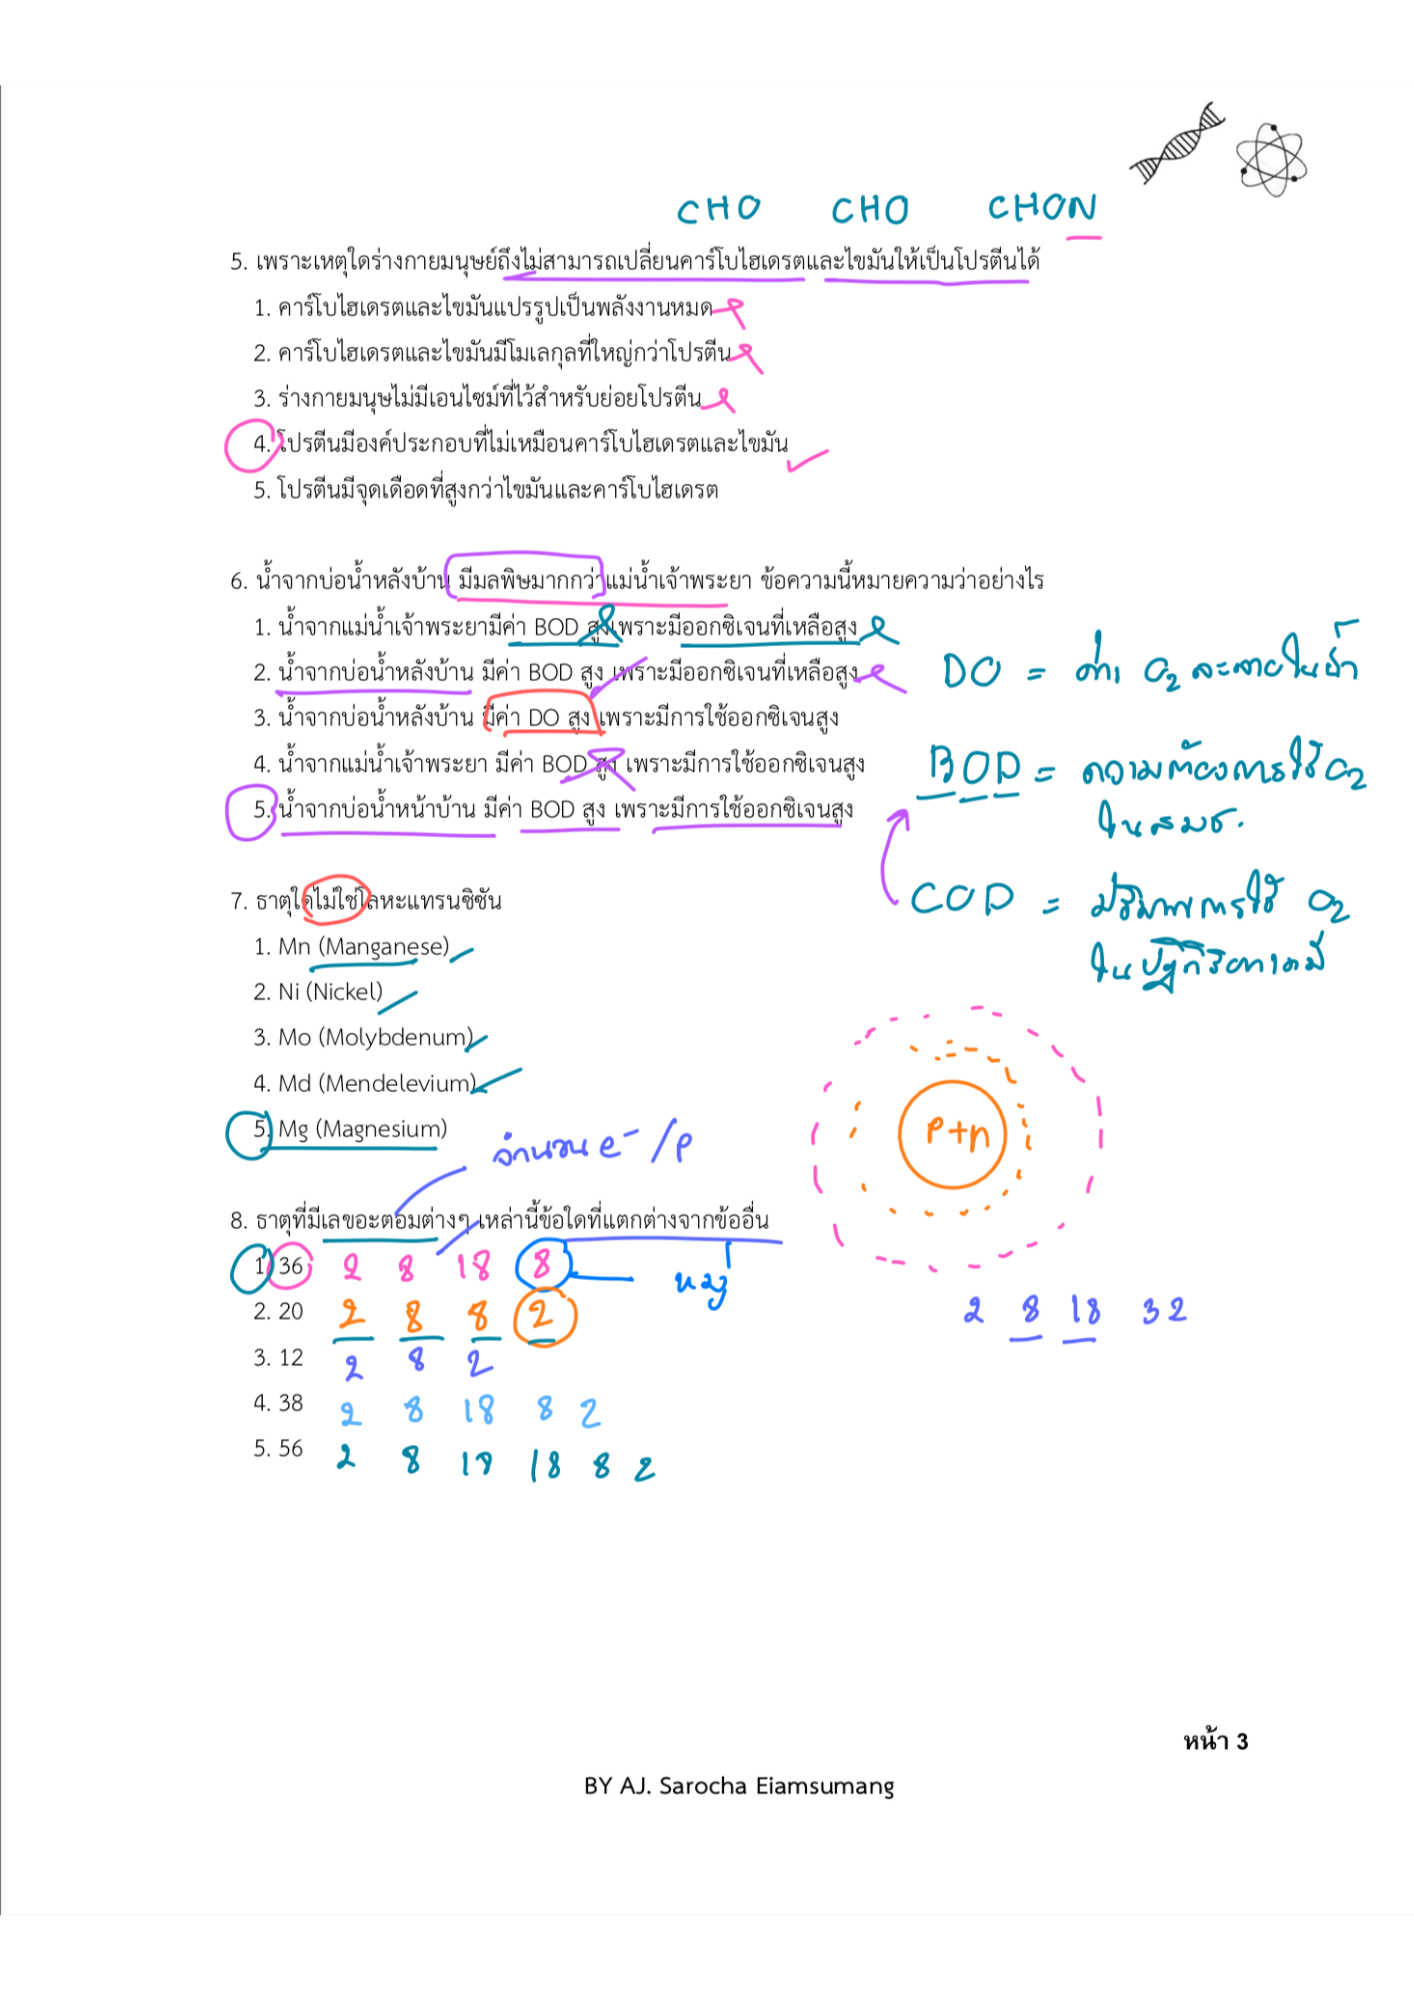 CHO CHO CHON
5. เพราะเหตุใดร่างกายมนุษย์ถึงไม่สามารถเปลี่ยนคาร์โบไฮเดรตและไขมันให้เป็นโปรตีนได้
1. คาร์โบไฮเดรตและไขมันแปรรูปเป็นพลังงานหมด
2. คาร์โบไฮเดรตและไขมันมีโมเลกุลที่ใหญ่กว่าโปรตีน
3. ร่างกายมนุษย์ไม่มีเอนไซม์ที่ไว้สำหรับย่อยโปรตีน
4. โปรตีนมีองค์ประกอบที่ไม่เหมือนคาร์โบไฮเดรตและไขมัน
5. โปรตีนมีจุดเดือดที่สูงกว่าไขมันและคาร์โบไฮเดรต
6. น้ำจากบ่อน้ำหลังบ้าน มีมลพิษมากกว่าแม่น้ำเจ้าพระยา ข้อความนี้หมายความว่าอย่างไร
1. น้ำจากแม่น้ำเจ้าพระยามีค่า BOD สูงเพราะมีออกซิเจนที่เหลือสูง
2. น้ำจากบ่อน้ำหลังบ้าน มีค่า BOD สูง เพราะมีออกซิเจนที่เหลือสูง
DO = ค่า O2 ละลายในน้ำ
3. น้ำจากบ่อน้ำหลังบ้าน มีค่า DO สูง เพราะมีการใช้ออกซิเจนสูง
4. น้ำจากแม่น้ำเจ้าพระยา มีค่า BOD สูง เพราะมีการใช้ออกซิเจนสูง
BOD = ความต้องการใช้ O2
5. น้ำจากบ่อน้ำหน้าบ้าน มีค่า BOD สูง เพราะมีการใช้ออกซิเจนสูง
ในสมช.
7. ธาตุใดไม่ใช่โลหะแทรนซิชัน
COD = ปริมาณการใช้ O2
1. Mn (Manganese)
ในปฏิกิริยาเคมี
2. Ni (Nickel)
3. Mo (Molybdenum)
4. Md (Mendelevium)
5. Mg (Magnesium)
P+n
จำนวน e- /p
8. ธาตุที่มีเลขอะตอมต่างๆ เหล่านี้ข้อใดที่แตกต่างจากข้ออื่น
1. 36 2 8 18 8 หมู่
2. 20 2 8 8 2
2 8 18 32
3. 12 2 8 2
4. 38 2 8 18 8 2
5. 56 2 8 18 18 8 2
หน้า 3
BY AJ. Sarocha Eiamsumang